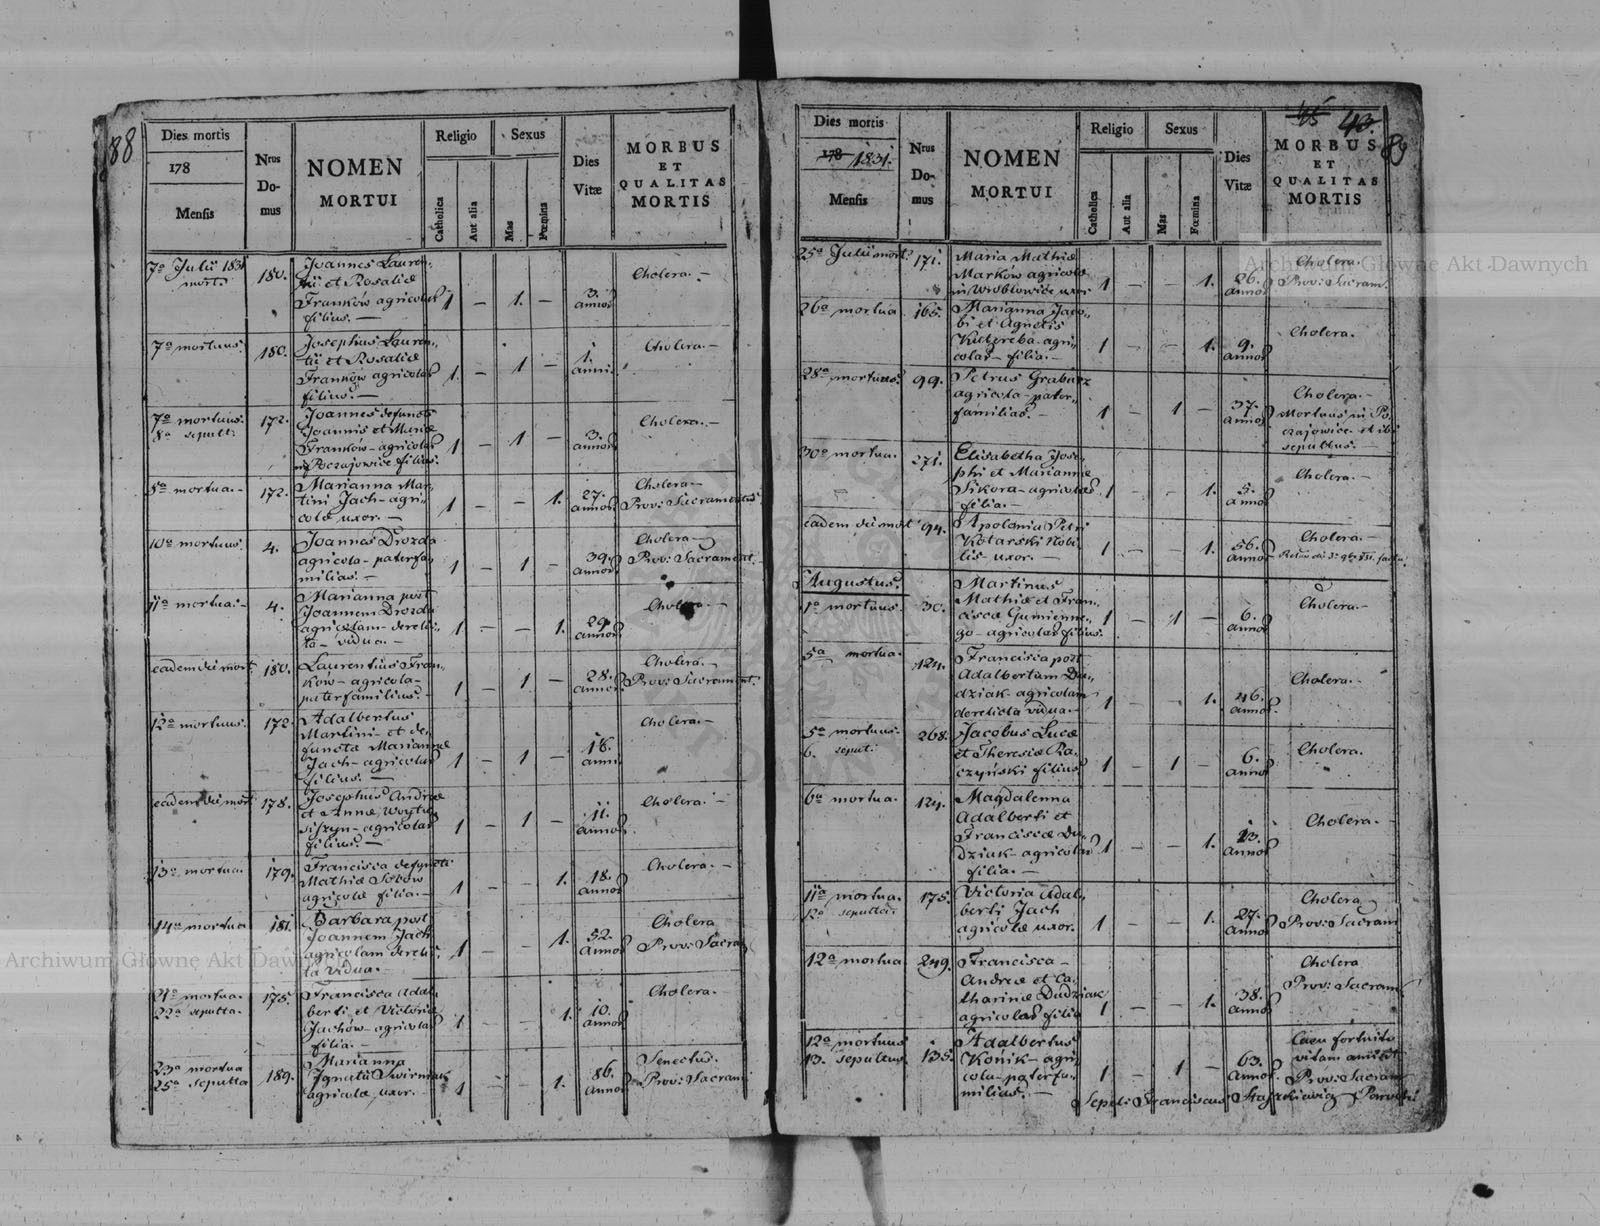 88
Dies mortis
178
Mensis
Nrus
Do-
mus
NOMEN
MORTUI
Religio
Catholica
Aut alia
Sexus
Mas
Fœmina
Dies
Vitæ
MORBUS
ET
QUALITAS
MORTIS
7a Julii 1831
mort:
180.
Joannes Lauren-
tii et Rosaliæ
Franków agricolar
filius. —
1 — 1. —
3.
annor
Cholera. —
7a mortuus.
180.
Josephus Lauren-
tii et Rosaliæ
Franków agricolar
filius. —
1. — 1 —
1.
anni.
Cholera. —
7a mortuus.
8a sepult:
172.
Joannes defuncti
Joannis et Mariæ
Franków - agricolar
in Poczajowice filius.
1 — 1 —
3.
annor
Cholera. —
8a mortua. -
172.
Marianna Mar-
tini Jach - agri-
colæ uxor. —
1 — — 1.
27.
annor
Cholera —
Prov: Sacramentis.
10a mortuus.
4.
Joannes Drozda
agricola - paterfa-
milias. —
1 — 1 —
39.
annor
Cholera
Prov: Sacrament.
11a mortua. -
4.
Marianna post
Joannem Drozda
agricolam - derelic-
ta - vidua. —
1. — — 1.
29.
annor
Cholera. —
eadem die mort.
180.
Laurentius Fran-
ków - agricola -
paterfamilias. -
1 — 1 —
28.
annor
Cholera. —
Prov: Sacrament.
12a mortuus.
172.
Adalbertus
Martini - et de-
functæ Mariannæ
Jach - agricolar
filius. —
1 — 1 —
anni
Cholera. —
eadem die mort.
178.
Josephus Andreæ
et Annæ
agricolar
filius. —
1 — 1 —
11.
annor
Cholera. —
13a mortua.
179.
Francisca defuncti
Mathiæ
agricolæ filia. —
1 — — 1.
18.
annor
Cholera. —
14a mortua
181.
Barbara post
Joannem Jach
agricolam derelic-
ta vidua. -
1 — — 1.
52.
annor
Cholera
Prov: Sacram
21a mortua.
22a sepulta.
175.
Francisca Adal-
berti et Victoriæ
Jachów - agricolar
filia. —
1 — — 1.
10.
annor
Cholera.
23a mortua
25a sepulta
189.
Marianna
Ignatii
agricolæ uxor. —
1 — — 1.
86.
annor
Senectus.
Prov: Sacram
45 43.
89
Dies mortis
178 1831.
Mensis
Nrus
Do-
mus
NOMEN
MORTUI
Religio
Catholica
Aut alia
Sexus
Mas
Fœmina
Dies
Vitæ
MORBUS
ET
QUALITAS
MORTIS
25a Julii mort:
171.
Maria Mathiæ
Marków agricolæ
in Wróblowice uxor
1 — — 1.
26.
annor
Cholera
Prov: Sacram.
26a mortua
165.
Marianna Jaco-
bi et Agnetis
agri-
colar - filia. -
1 — — 1.
9.
annor
Cholera.
28a mortuus.
99.
Petrus Grabarz
agricola - pater-
familias. —
1 — 1 —
37.
annor
Cholera. —
Mortuus in Po-
czajowice et ibi
sepultus.
30a mortua.
271.
Elisabetha Jose-
phi et Mariannæ
Sikora - agricolar
filia. —
1 — — 1.
5.
annor
Cholera. —
eadem die mort
94.
Apolonia Petri
Kotarski Nobi-
lis - uxor. —
1 — — 1.
56.
annor
Cholera. —
Augustus.
1a mortuus.
30.
Martinus
Mathiæ et Fran-
ciscæ Gumienne-
go - agricolar filius.
1 — 1 —
6.
annor
Cholera. -
5a mortua.
124.
Francisca post
Adalbertum Du-
dziak - agricolam
derelicta vidua. -
1 — — 1.
46.
annor
Cholera. —
5a mortuus.
6. sepult:
268.
Jacobus Lucæ
et Theresiæ Ra-
czyński filius
1 — 1 —
6.
annor
Cholera.
6a mortua.
124.
Magdalenna
Adalberti et
Franciscæ Du-
dziak - agricolar
filia. —
1 — — 1.
13.
annor
Cholera. —
11a mortua.
12a sepulta.
175.
Victoria Adal-
berti Jach
agricolæ uxor.
1 — — 1.
27.
annor
Cholera
Prov: Sacram
12a mortua
249.
Francisca -
Andreæ et Ca-
tharinæ Dudziak
agricolar filia
1 — — 1.
38.
annor
Cholera
Prov: Sacram
12a mortuus
13. sepultus
135.
Adalbertus
Konik - agri-
cola - paterfa-
milias. —
1 — 1 —
63.
annor
Casu fortuito
vitam amisit
Prov: Sacram
Sepel: Franciscus
Archiwum Główne Akt Dawnych
Archiwum Główne Akt Dawnych